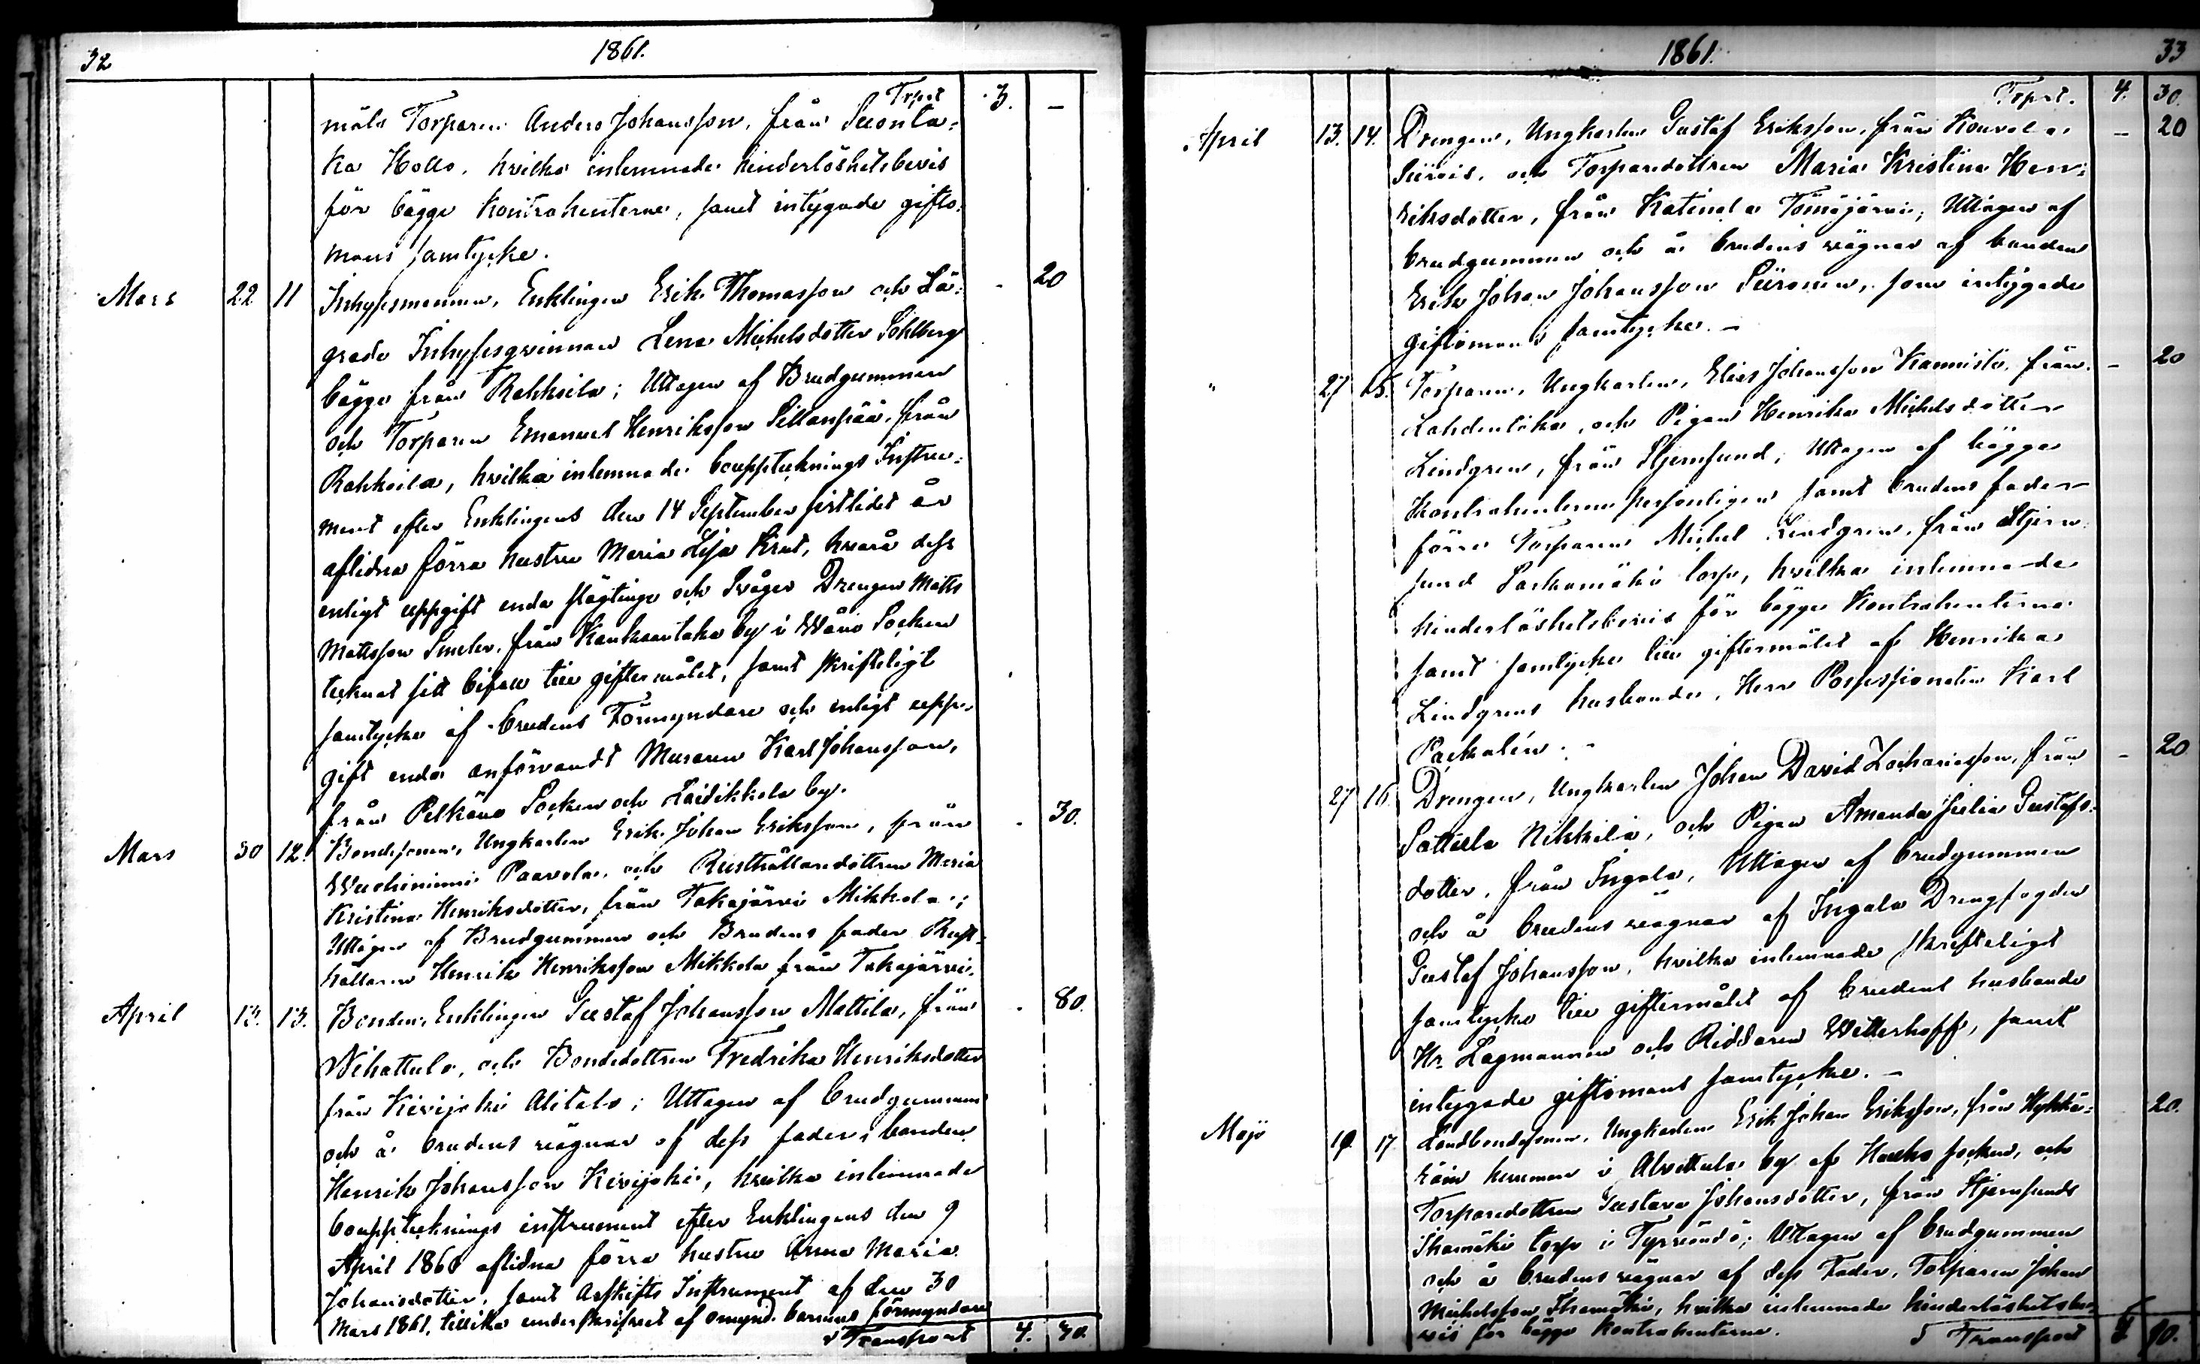 32 1861.
Trpt 3. —
måls Torparen Anders Johansson, från Suonta-
ka Hollo, hvilka inlemnade hinderlöshetsbevis
för bägge Kontrahenterne, samt intygade gifto-
mans samtycke.
Mars 22 11 Inhysesmannen, Enklingen Erik Thomasson och Lä- - 20
grade Inhysesqvinnan Lena Michelsdotter Sohlberg
bägge från Rahkoila; Uttagen af Brudgummen
och Torparen Emanuel Henriksson Sillanpää från
Rahkoila, hvilka inlemnade bouppteknings Instru-
ment efter Enklingens den 14 September sistlidet år
aflidna förra hustru Maria Lisa Krut, hvarå dess
enligt uppgift enda slägtinge och Svåger Drengen Matts
Mattsson Smeler, från Kankaantaka by i Wåno Socken
teknat sitt bifall till giftermålet, samt skrifteligt
samtycke af Brudens Förmyndare och enligt upp-
gift enda anförvandt Muraren Karl Johansson,
från Pelkäne Socken och Laitikkala by.
Mars 30 12. Bondesonen, Ungkarlen Erik Johan Eriksson, från - 30.
Wuohiniemi Paavola, och Rusthållaredottren Maria
Kristina Henriksdotter, från Takajärvi Mikkola;
Uttagen af Brudgummen och Brudens fader Rust-
hållaren Henrik Henriksson Mikkola från Takajärvi.
April 13. 13. Bonden, Enklingen Gustaf Johansson Mattila, från - 80.
Nihattula, och Bondedottren Fredrika Henriksdotter
från Kivijoki Alitalo; Uttagen af brudgummen
och å brudens vägnar af dess fader, bonden
Henrik Johansson Kivijoki, hvilka inlemnade
bouppteknings instrument efter Enklingens den 9
April 1860 aflidna förra hustru Anna Maria
Johansdotter, samt Arfskifts Instrument af den 30
Mars 1861, tillika underskrifvet af omynd. barnens förmyndare
Transport 4. 30.
1861. 33
Trpt. 4. 30.
April 13. 14. Drengen, Ungkarlen Gustaf Eriksson, från Kouvola - 20
Siirois, och Torparedottren Maria Kristina Hen-
riksdotter, från Katinala Tömäjärvi; Uttagen af
brudgummen och å brudens vägnar af bonden
Erik Johan Johansson Siiroinen, som intygade
giftomans samtycke. —
" 27 15. Torparen, Ungkarlen, Elias Johansson Kannisto, från - 20
Lahdentaka, och Pigan Henrika Michelsdotter
Lindgren, från Stjernsund; Uttagen af bägge
Kontrahenterne personligen samt brudens fader
förre Torparen Michel Lindgren, från Stjern-
sund Parkamäki torp, hvilka inlemnade
hinderlöshetsbevis för bägge Kontrahenterne
samt samtycke till giftermålet af Henrika
Lindgrens husbonde, Herr Possessionaten Karl
Packalén. -
27 16 Drengen, Ungkarlen Johan David Zachariasson, från - 20
Sattula Nikkilä, och Pigan Amanda Julia Gustafs-
dotter, från Ingala, Uttagen af brudgummen
och å brudens vägnar af Ingala Drengfogden
Gustaf Johansson, hvilka inlemnade skrifteligt
samtycke till giftermålet af brudens husbonde
Hr. Lagmannen och Riddaren Wetterhoff, samt
intygade giftomans samtycke. —
Majo 19 17 Landbondesonen, Ungkarlen Erik Johan Eriksson, från Hykkä- 20.
räin hemman i Alvettula by af Hauho socken, och
Torparedottren Gustava Johansdotter, från Stjernsunds
Ihamäki torp i Tyrväntö; Uttagen af brudgummen
och å brudens vägnar af dess Fader, Torparen Johan
Michelsson Ihamäki, hvilka inlemnade hinderlöshetsbe-
vis för bägge Kontrahenterne.
Transport 10.